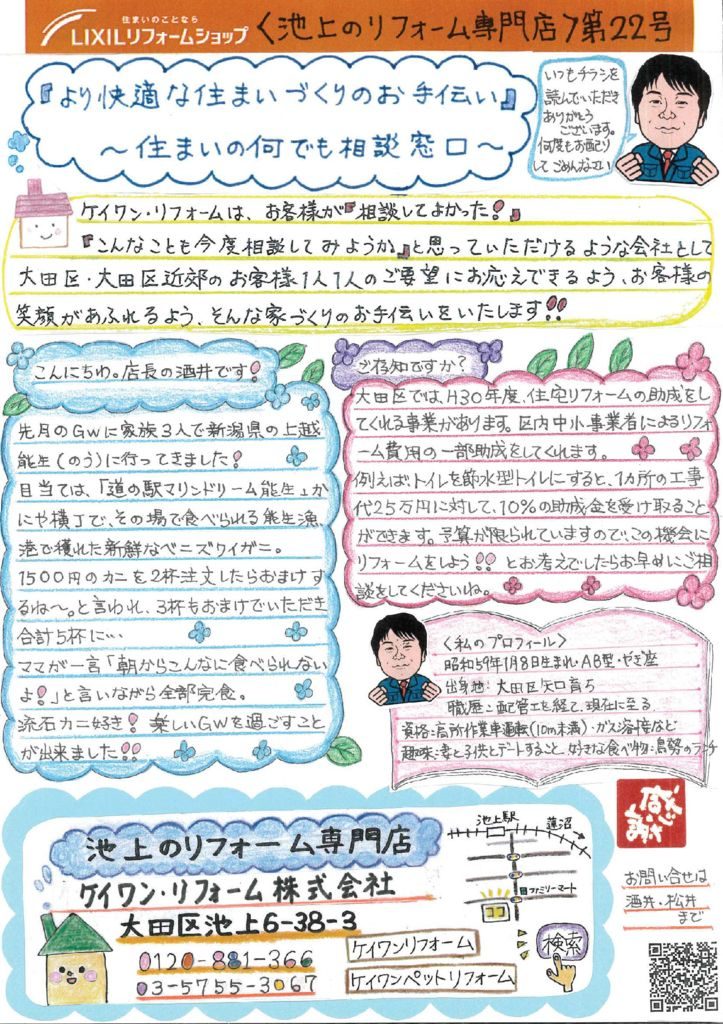 住まいのことなら
LIXILリフォームショップ
〈池上のリフォーム専門店〉第22号
『より快適な住まいづくりのお手伝い』
～住まいの何でも相談窓口～
いつもチラシを
読んでいただき
ありがとう
ございます。
何度もお配り
して ごめんなさい
ケイワン・リフォームは、お客様が『相談してよかった!』
『こんなことも今度相談してみようか』と思っていただけるような会社として
大田区・大田区近郊のお客様1人1人のご要望にお応えできるよう、お客様の
笑顔があふれるよう、そんな家づくりのお手伝いをいたします!!
こんにちわ。店長の酒井です!
先月のGWに家族3人で新潟県の上越
能生(のう)に行ってきました!
目当ては、「道の駅マリンドリーム能生」か
にや横丁で、その場で食べられる能生漁
港で穫れた新鮮なベニズワイガニ。
1500円のカニを2杯注文したらおまけす
るね〜。と言われ、3杯もおまけでいただき
合計5杯に…
ママが一言「朝からこんなに食べられない
よ!」と言いながら全部完食。
流石カニ好き! 楽しいGWを過ごすこと
が出来ました!!
ご存知ですか?
大田区では、H30年度、住宅リフォームの助成をし
てくれる事業があります。区内中小事業者によるリフォ
ーム費用の一部助成をしてくれます。
例えばトイレを節水型トイレにすると、1カ所の工事
代25万円に対して、10%の助成金を受け取ること
ができます。予算が限られていますので、この機会に
リフォームをしよう!! とお考えでしたらお早めにご相
談をしてくださいね。
〈私のプロフィール〉
昭和59年1月8日生まれ・AB型・やぎ座
出身地:大田区矢口育ち
職歴:配管工を経て、現在に至る
資格:高所作業車運転(10m未満)・ガス溶接など
趣味:妻と子供とデートすること 好きな食べ物:
感謝
池上のリフォーム専門店
ケイワン・リフォーム株式会社
大田区池上6-38-3
0120-881-366
03-5755-3067
ケイワンリフォーム
ケイワンペットリフォーム
検索
池上駅
蓮沼
ファミリーマート
お問い合せは
酒井・松井
まで